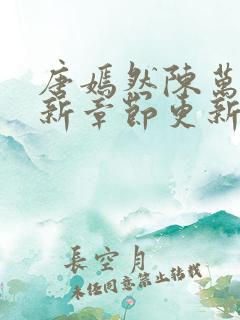 唐嫣然陳萬
新章節更新
長空月
未任同意禁止转载